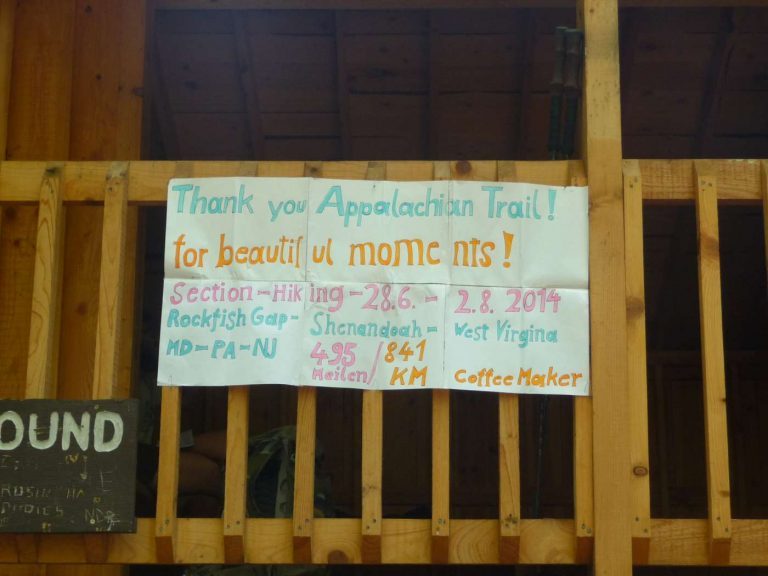 Thank you Appalachian Trail!
for beautiful moments!
Section-Hiking-28.6.- 2.8. 2014
Rockfish Gap- Shenandoah- West Virgina
MD-PA-NJ 495 Meilen/841 KM
Coffee Maker
OUND